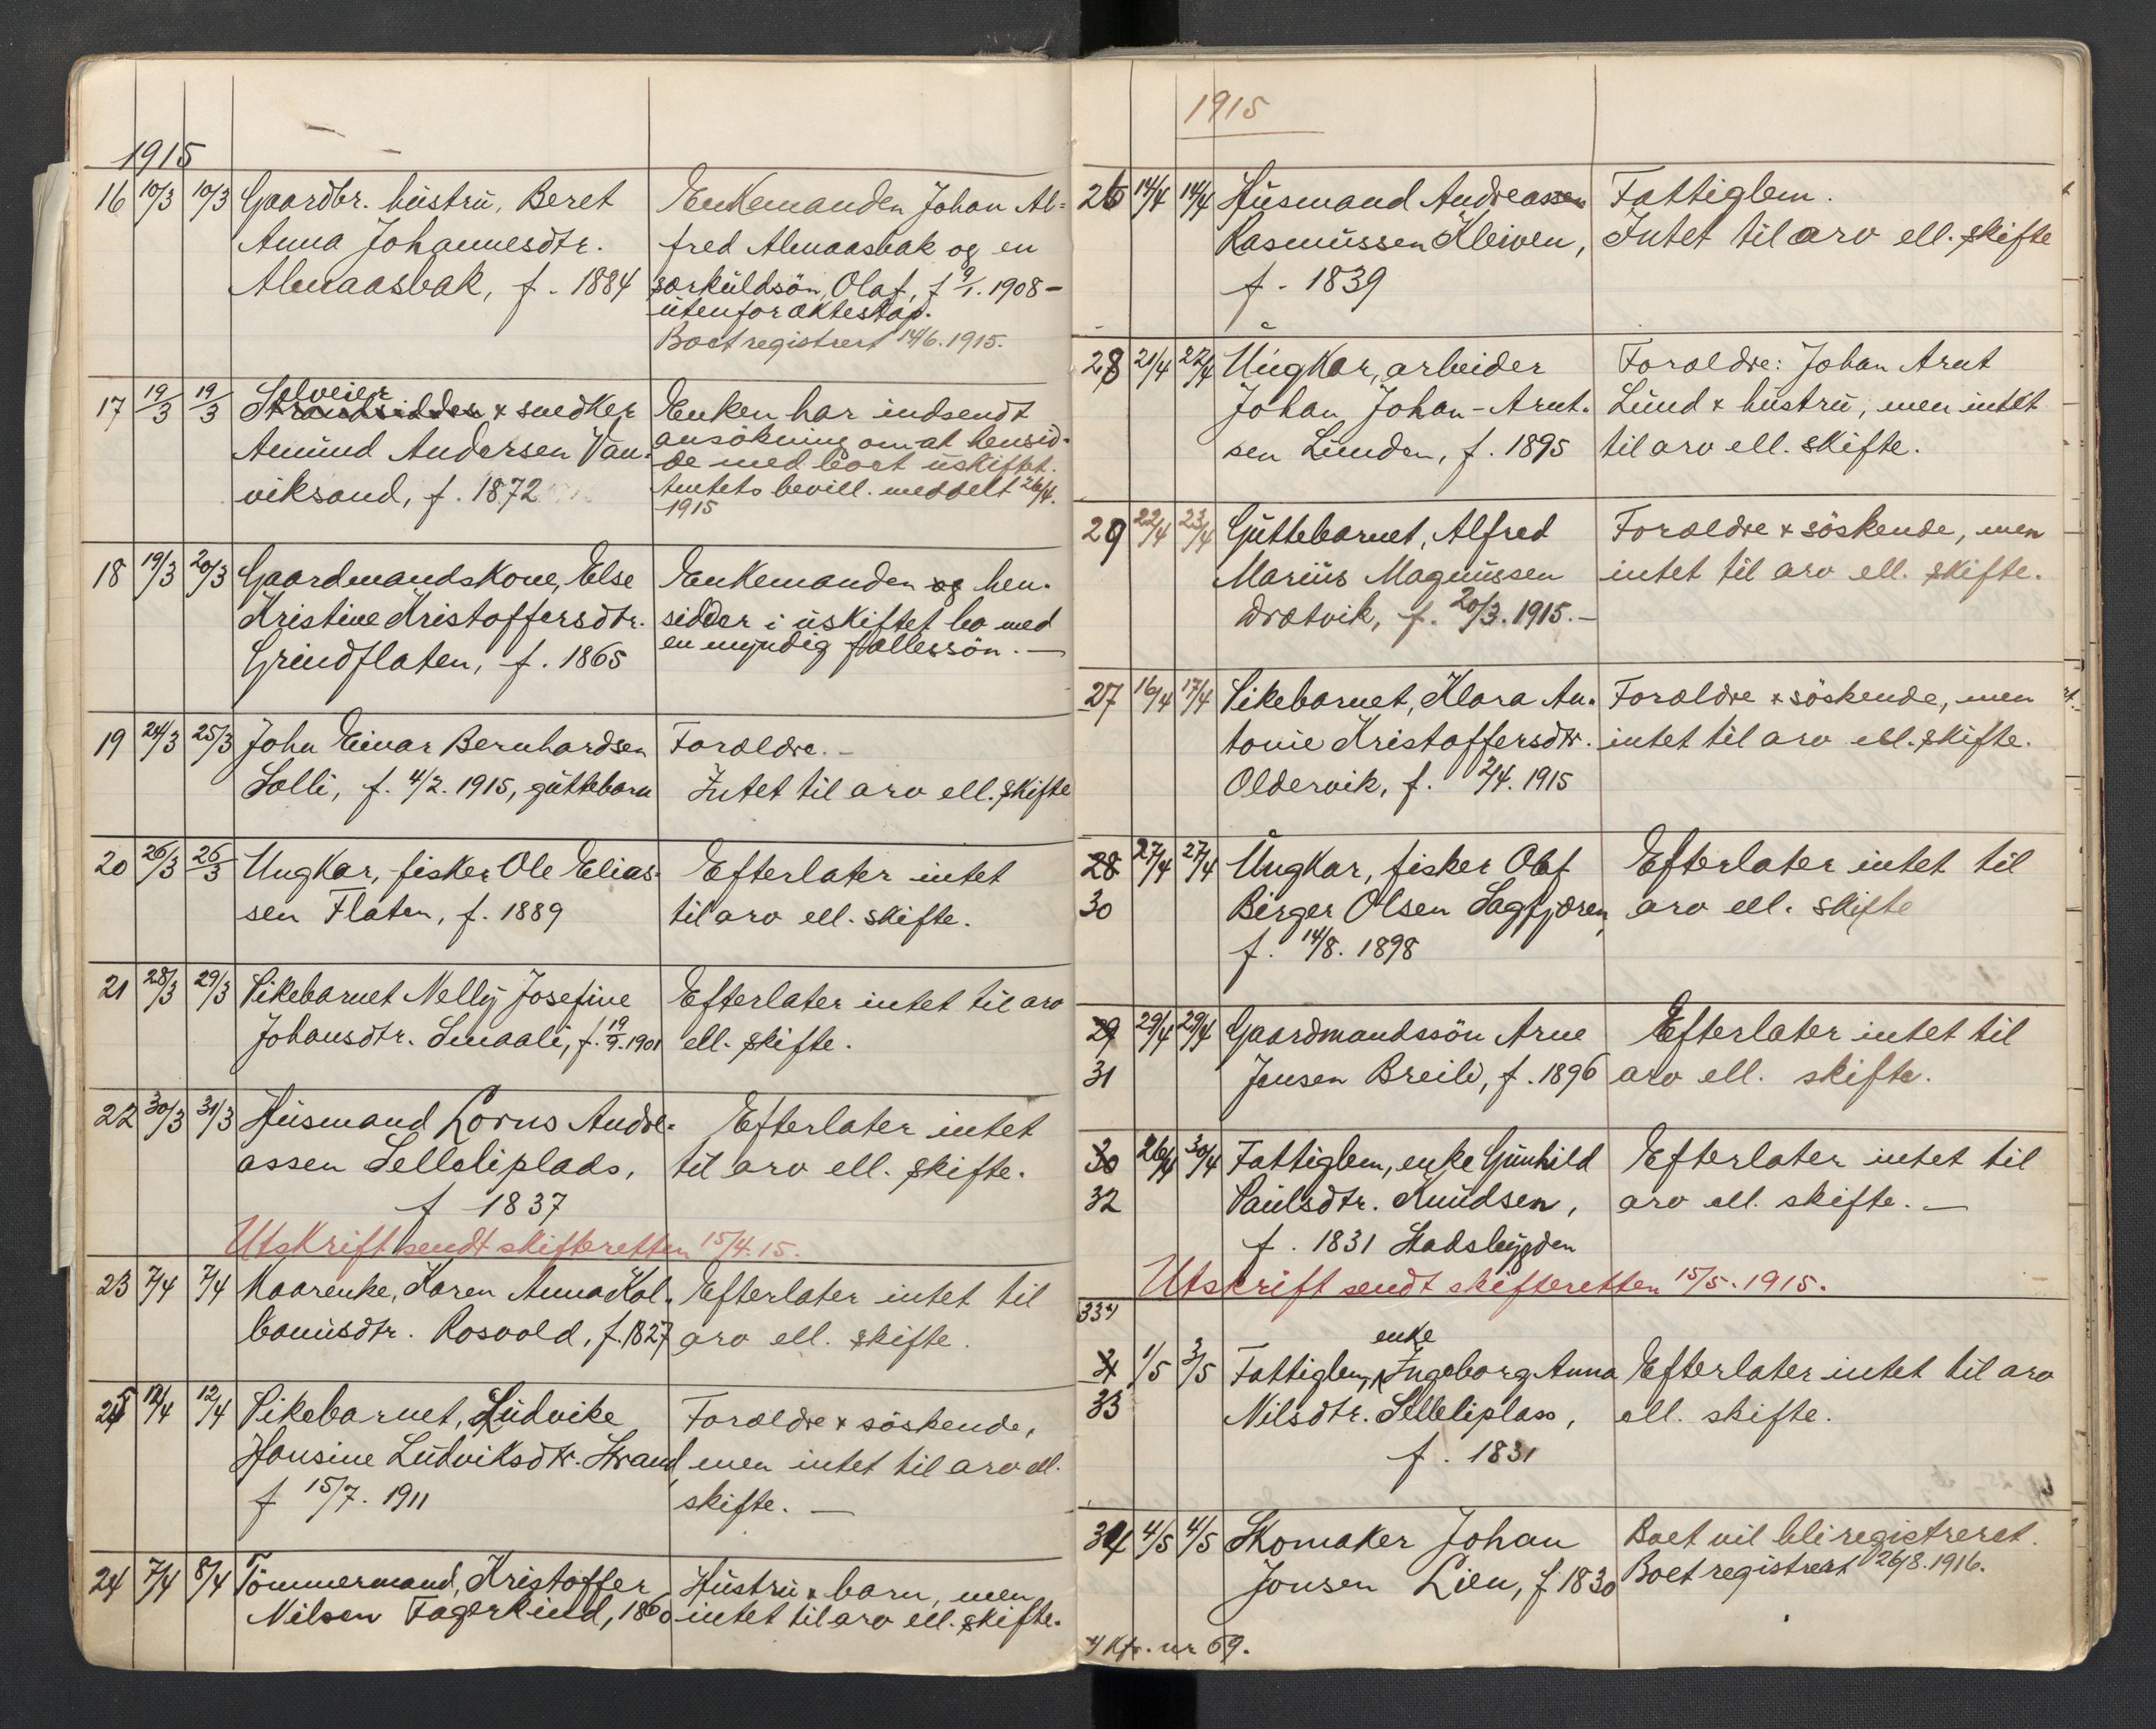 1915
16 10/3 10/3 Gaardbr. hustru, Beret Enkemanden Johan Al-
Anna Johannesdtr. fred Almaasbak og en
Almaasbak, f. 1884 særkuldsön, Olaf, f 9/1. 1908 -
utenfor ækteskap.
Boet registrert 14/6. 1915.
17 19/3 19/3 Selveier
Strandsidder & snedker Enken har indsendt
Amund Andersen Van- ansökning om at hensid-
de med boet uskiftet.
viksand, f. 1872 Amtets bevill. meddelt 26/4.
1915
18 19/3 20/3 Gaardmandskone, Else Enkemanden og hen-
Kristine Kristoffersdtr. sidder i uskiftet bo med
Grindflaten, f. 1865 en myndig fællessön. —
19 24/3 25/3 John Einar Bernhardsen Forældre. -
Solli, f. 4/2. 1915, guttebarn Intet til arv ell. skifte
20 26/3 26/3 Ungkar, fisker Ole Elias- Efterlater intet
sen Flaten, f. 1889 til arv ell. skifte.
21 28/3 29/3 Pikebarnet Nelly Josefine Efterlater intet til arv
Johansdtr. Smaali, f. 19/9. 1901 ell. skifte.
22 30/3 31/3 Husmand Lorns Andre- Efterlater intet
assen Selleliplads, til arv ell. skifte.
f 1837
Utskrift sendt skifteretten 15/4. 15.
23 7/4 7/4 Kaarenke, Karen Anna Kol- Efterlater intet til
bonusdtr. Rosvold, f. 1827 arv ell. skifte.
25 12/4 12/4 Pikebarnet, Ludvike Forældre & söskende,
Hansine Ludviksdtr. Strand men intet til arv ell.
f 15/7. 1911 skifte. —
24 7/4 8/4 Tömmermand, Kristoffer Hustru & barn, men
Nilsen Fagerlund, 1860 intet til arv ell. skifte.
1915
26 14/4 14/4 Husmand Andreassen Fattiglem.
Rasmussen Kleiven, Intet til arv ell. skifte
f. 1839
28 21/4 22/4 Ungkar, arbeider Forældre: Johan Arnt
Johan Johan-Arnt- Lund & hustru, men intet
sen Lunden, f. 1895 til arv ell. skifte.
29 22/4 23/4 Guttebarnet, Alfred Forældre & söskende, men
Marius Magnussen intet til arv ell. skifte.
Drætvik, f. 20/3. 1915. -
27 16/4 17/4 Pikebarnet, Klara An- Forældre & söskende, men
tonie Kristoffersdtr. intet til arv ell. skifte.
Oldervik, f. 2/4. 1915
28 27/4 27/4 Ungkar, fisker Olaf Efterlater intet til
30 Birger Olsen Sagfjæren, arv ell. skifte
f. 14/8. 1898
29 29/4 29/4 Gaardmandssön Arne Efterlater intet til
31 Jensen Breili, f. 1896 arv ell. skifte.
30 26/4 30/4 Fattiglem, enke Gunhild Efterlater intet til
32 Paulsdtr. Knudsen, arv ell. skifte. —
f. 1831 Stadsbygden
Utskrift sendt skifteretten 15/5. 1915.
33 x)
enke
31 1/5 3/5 Fattiglem, Ingeborg Anna Efterlater intet til arv
33 Nilsdtr. Selleliplass, ell. skifte.
f. 1831
34 4/5 4/5 Skomaker Johan Boet vil bli registreret.
Jonsen Lien, f 1830 Boet registrert 26/8. 1916.
x) Kfr. nr 69.